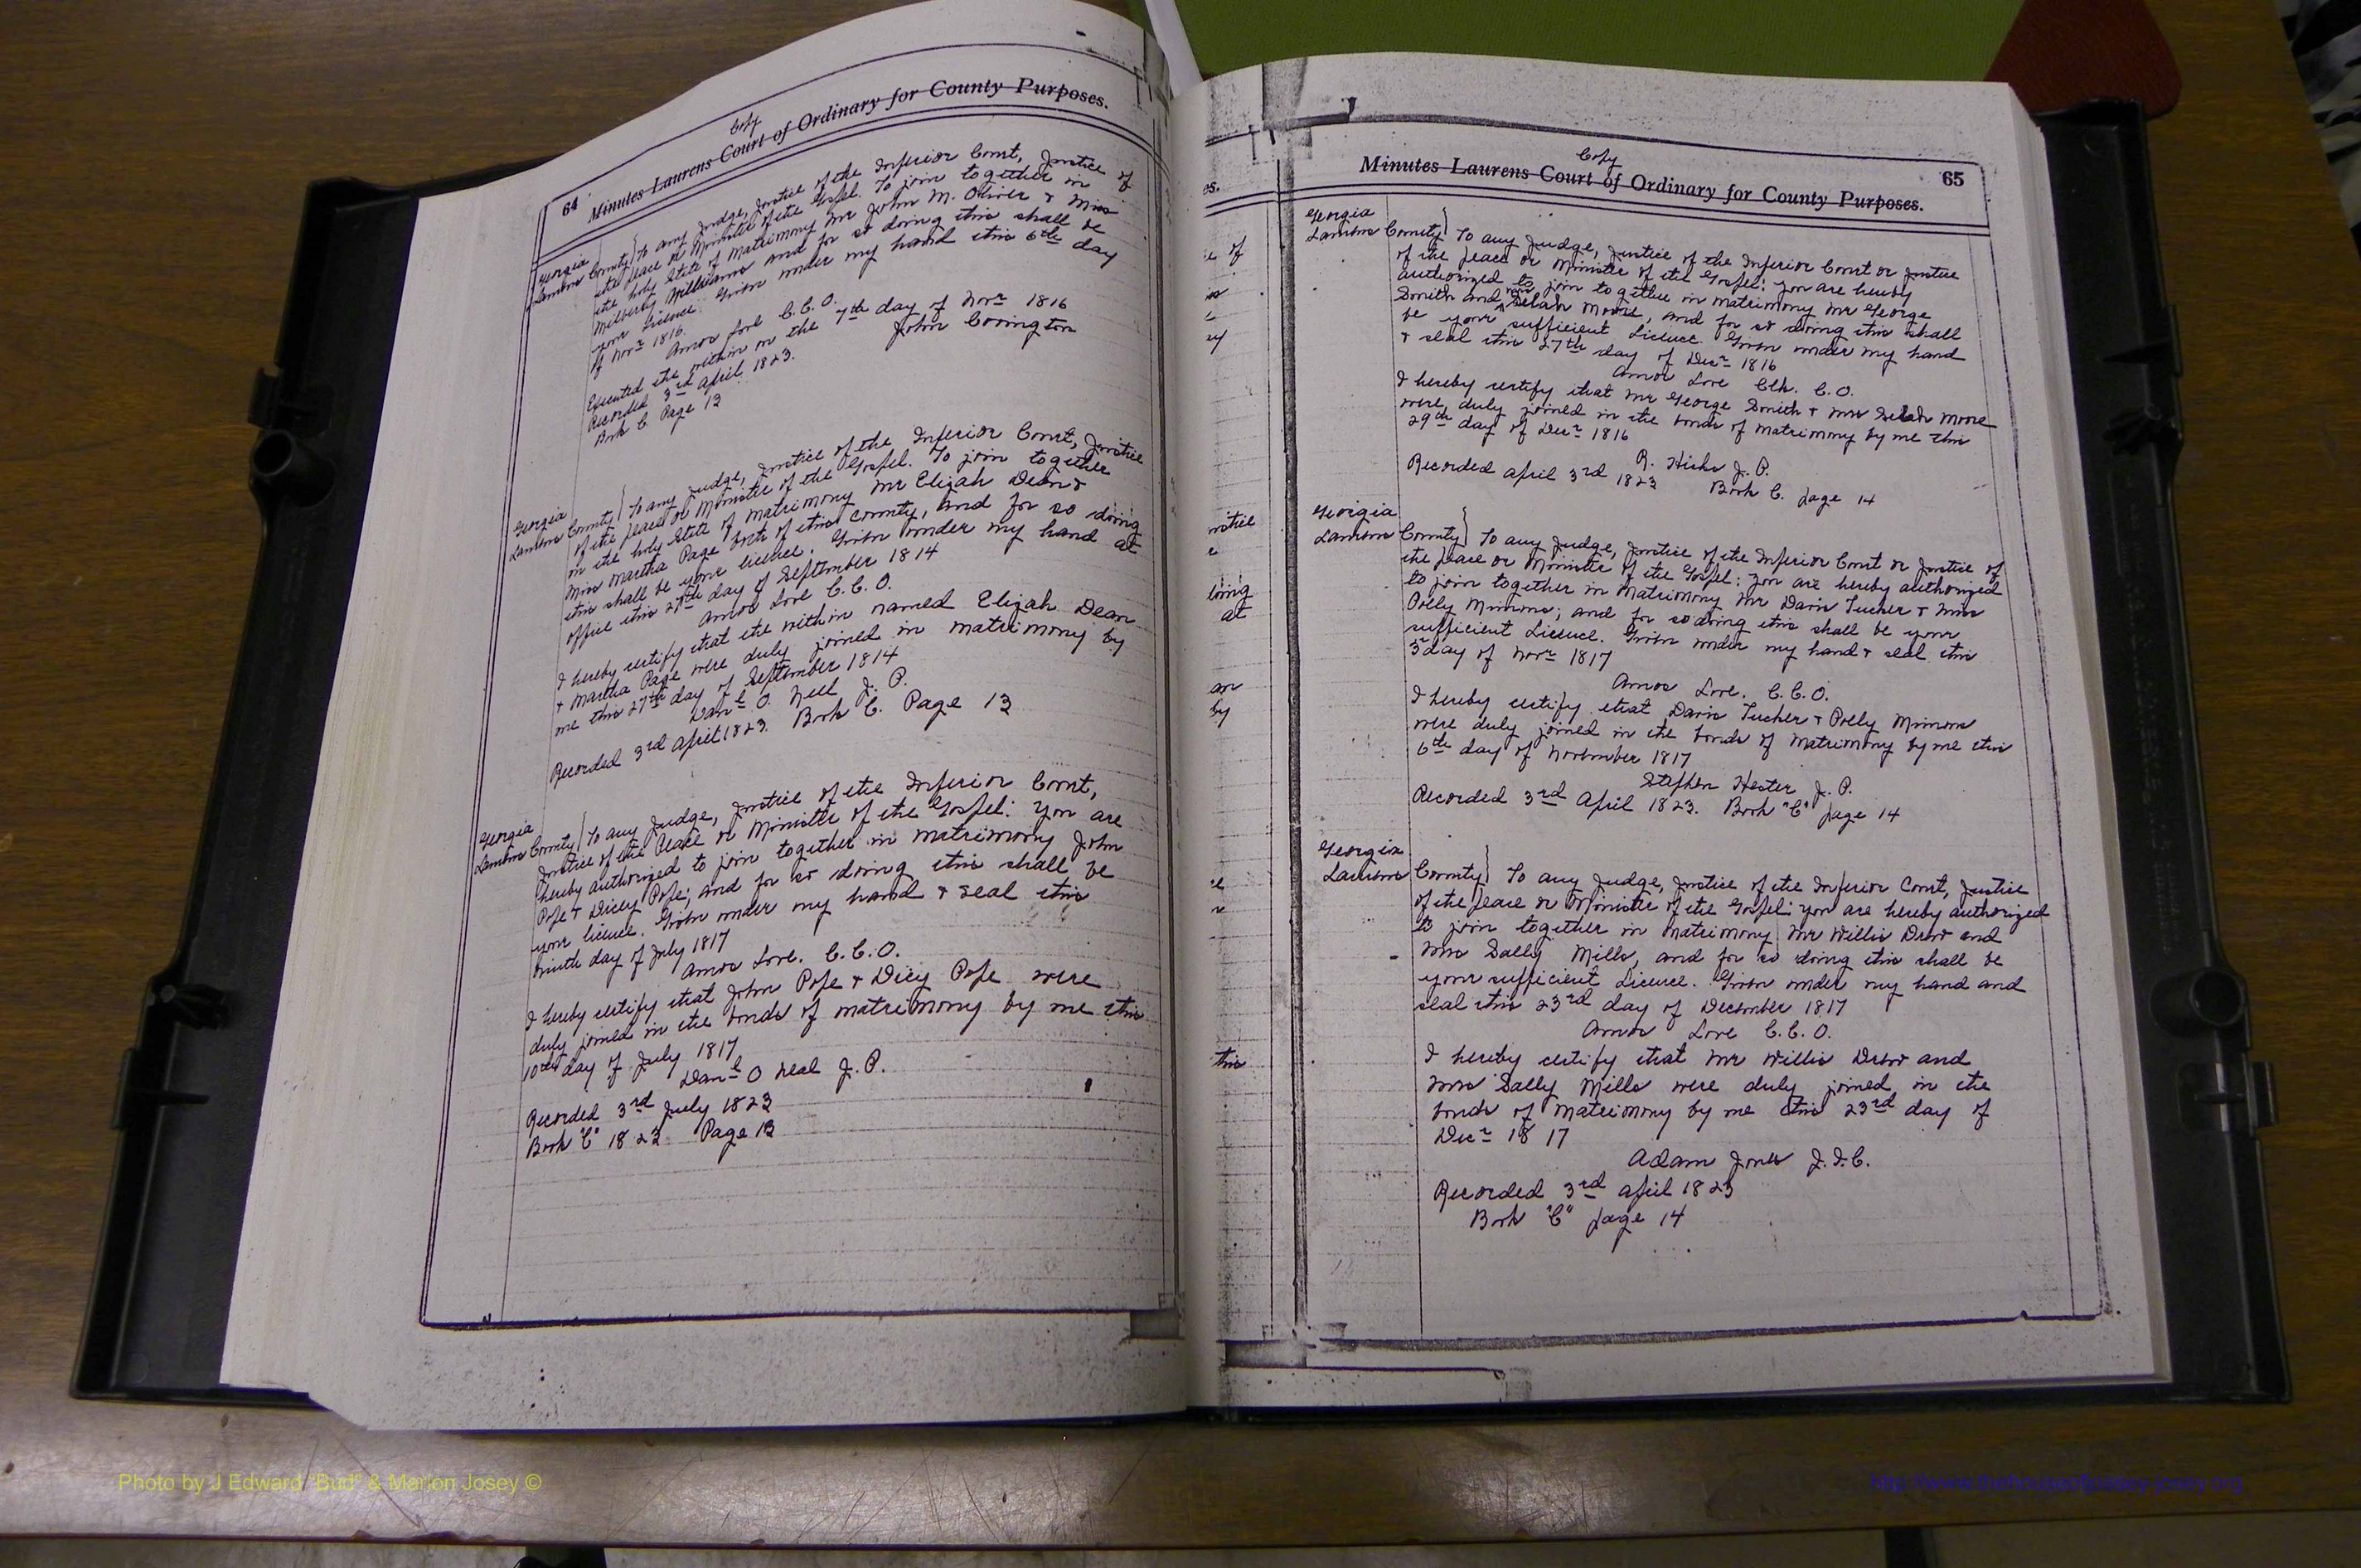 Copy
64 Minutes Laurens Court of Ordinary for County Purposes.
Georgia
Laurens County } To any Judge, Justice of the Inferior Court, Justice of
the peace or Minister of the Gospel. To join together in
the holy State of Matrimony Mr John M. Oliver & Miss
Milberby Williams and for so doing this shall be
your licence. Given under my hand this 6th day
of Novr 1816.
Amos Love C.C.O.
Executed the within on the 7th day of Novr 1816
John Covington
Recorded 3rd April 1823.
Book C Page 13
Georgia
Laurens County } To any Judge, Justice of the Inferior Court, Justice
of the peace or Minister of the Gospel. To join together
in the holy State of Matrimony Mr Elijah Dean &
Miss Martha Page both of this County, and for so doing
this shall be your licence. Given under my hand at
office this 27th day of September 1814
Amos Love C.C.O.
I hereby certify that the within named Elijah Dean
& Martha Page were duly joined in matrimony by
me this 27th day of September 1814
Danl O. Neel J. P.
Recorded 3rd April 1823. Book C. Page 13
Georgia
Laurens County } To any Judge, Justice of the Inferior Court,
Justice of the Peace or Minister of the Gospel: You are
hereby authorized to join together in matrimony John
Pope & Dicey Pope; and for so doing this shall be
your licence. Given under my hand & seal this
ninth day of July 1817
Amos Love. C.C.O.
I hereby certify that John Pope & Dicy Pope were
duly joined in the bonds of matrimony by me this
10th day of July 1817
Danl O Neal J. P.
Recorded 3rd July 1823
Book "C" 1823 Page 13
es.
e of
ey
at
by
this
Copy
Minutes Laurens Court of Ordinary for County Purposes. 65
Georgia
Laurens County } To any Judge, Justice of the Inferior Court or Justice
of the peace or Minister of the Gospel: you are hereby
authorized to join together in matrimony Mr George
Smith and Mrs Selah Moore, and for so doing this shall
be your sufficient Licence. Given under my hand
& seal this 27th day of Decr 1816
Amos Love Clk. C.O.
I hereby certify that Mr George Smith & Mrs Selah Moore
were duly joined in the bonds of matrimony by me this
29th day of Decr 1816
R. Hicks J. P.
Recorded April 3rd 1823 Book C. page 14
Georgia
Laurens County } To any Judge, Justice of the Inferior Court or Justice of
the peace or Minister of the Gospel: you are hereby authorized
to join together in Matrimony Mr Davis Tucker & Miss
Polly Mimms; and for so doing this shall be your
sufficient Licence. Given under my hand & seal this
3d day of Novr 1817
Amos Love. C.C.O.
I hereby certify that Davis Tucker & Polly Mimms
were duly joined in the bonds of Matrimony by me this
6th day of November 1817
Stephen Hester J. P.
Recorded 3rd April 1823. Book "C" page 14
Georgia
Laurens County } To any Judge, Justice of the Inferior Court, Justice
of the peace or Minister of the Gospel: you are hereby authorized
to join together in matrimony Mr Willis Drew and
Miss Sally Mills, and for so doing this shall be
your sufficient Licence. Given under my hand and
seal this 23rd day of December 1817
Amos Love C.C.O.
I hereby certify that Mr Willis Drew and
Miss Sally Mills were duly joined in the
bonds of Matrimony by me this 23rd day of
Decr 1817
Adam Jones J.I.C.
Recorded 3rd April 1823
Book "C" page 14
Photo by J Edward "Bud" & Marion Josey ©
http://www.thehouseofjossey-josey.org